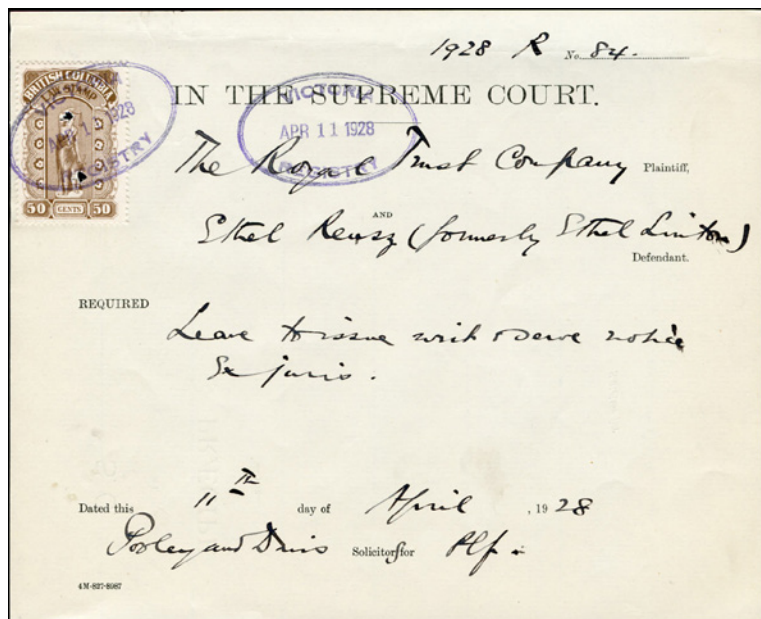 1928 R No. 84.
BRITISH COLUMBIA
LAW STAMP
50 CENTS 50
VICTORIA
APR 11 1928
REGISTRY
IN THE SUPREME COURT.
VICTORIA
APR 11 1928
REGISTRY
The Royal Trust Company Plaintiff,
AND
Ethel (formerly Ethel Linton)
Defendant.
REQUIRED
Leave to issue writ & serve notice
Ex juris.
Dated this 11th day of April , 1928
Pooley and Davis Solicitors for Plf.
4M-827-8987